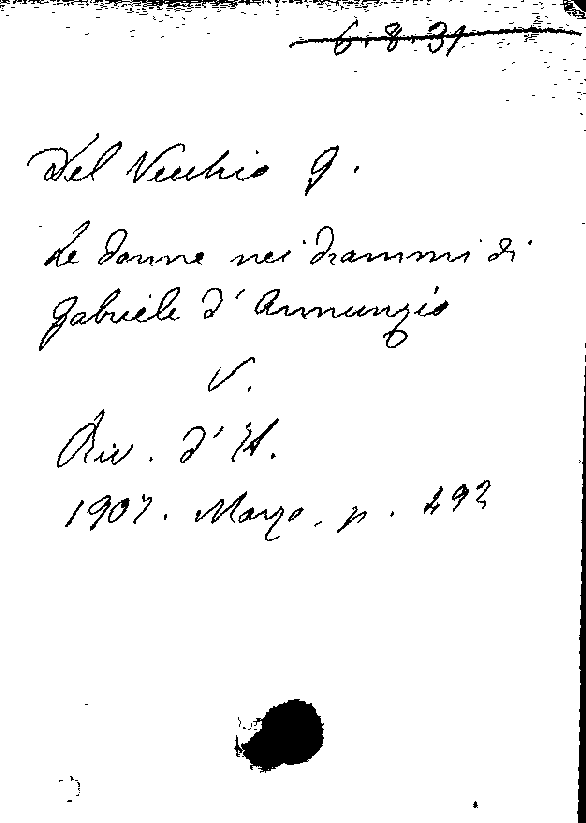 6.8.31
Del Vecchio G.
Le donne nei drammi di
Gabriele d'Annunzio
V.
Riv. d'It.
1907. Marzo, p. 492